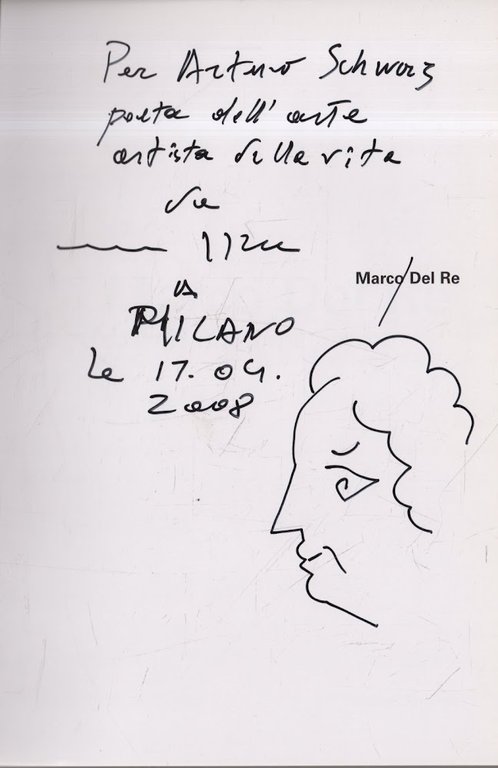 Per Arturo Schwarz
poeta dell'arte
artista della vita
da
Marco Del Re
A
MILANO
le 17. 04.
2008